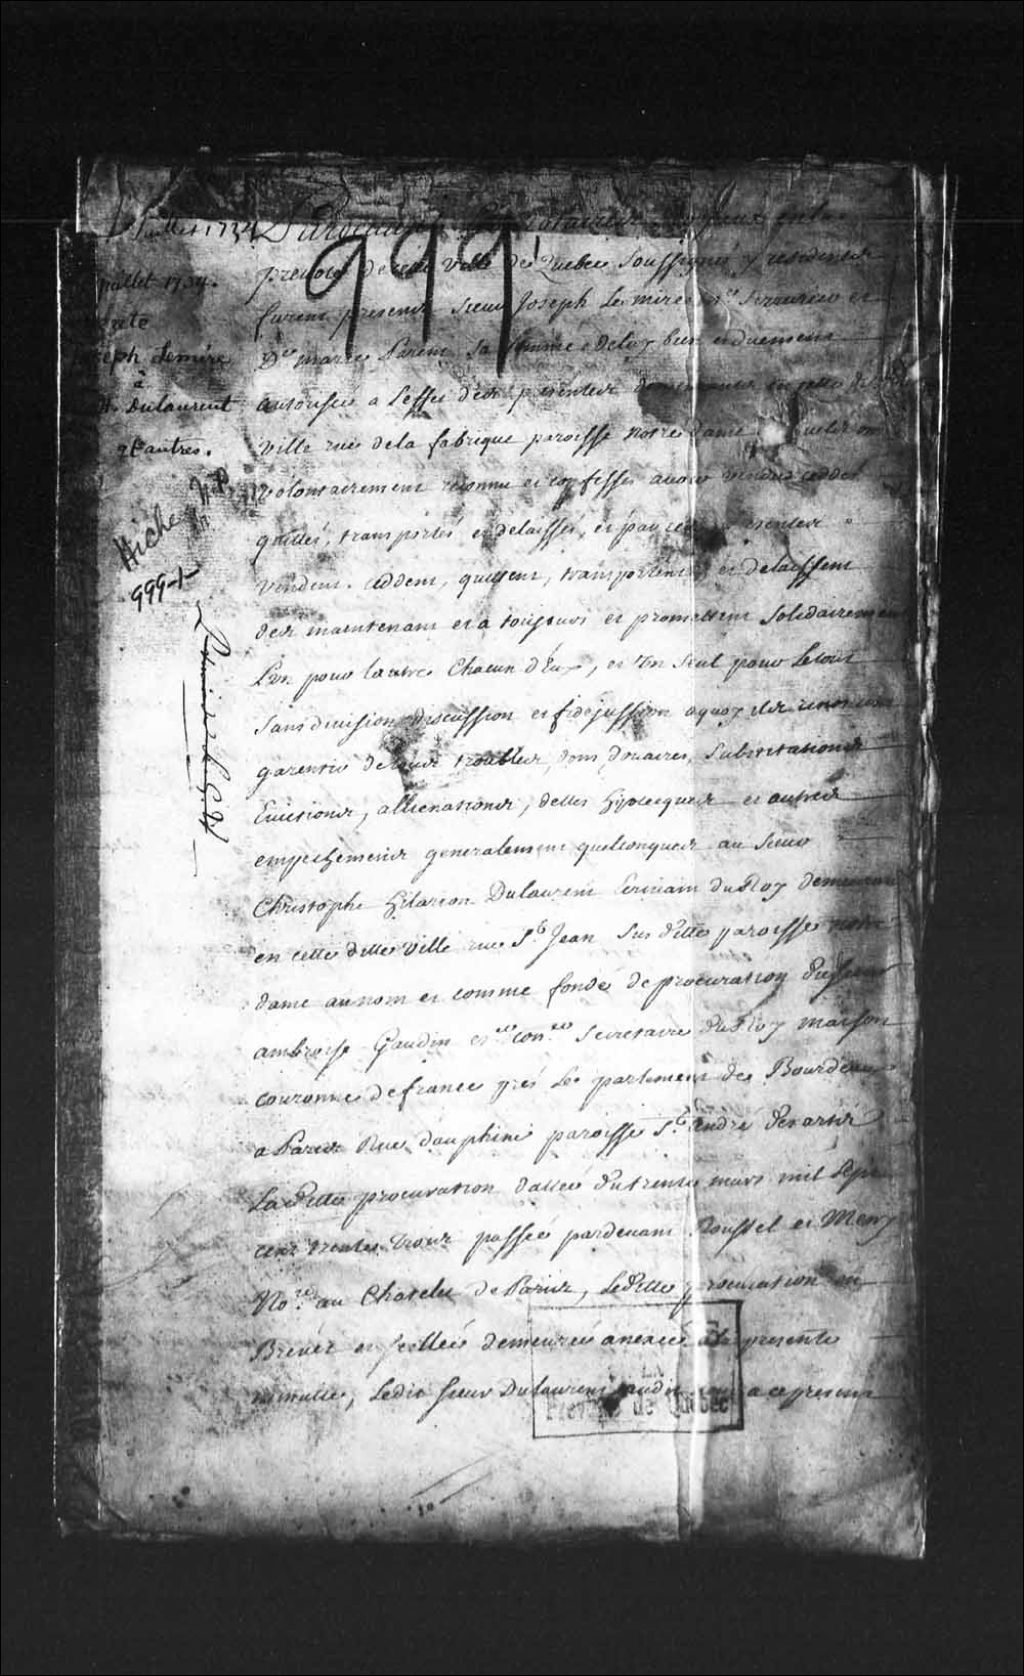 Juillet 1734
Pardevant
999
prevosté de cette Ville de Quebec Soussignés y residents
Juillet 1734.
furent presents Sieur Joseph Le mire Me Serrurier et
Vente
De marie Parent Sa femme delui bien et duement
Joseph Lemire
à
autorisée a Leffet des presentes
H. Dulaurent
ville rue de la fabrique paroisse notre dame
et autres.
volontairement reconnu et confessé avoir vendu cedde
Hiche N.P.
999-1-
quittés, transportés et delaissés, et par ces presentes
vendent. ceddent, quittent, transportent et delaissent
des maintenant et a toujours et promettent Solidairement
L'un pour lautre Chacun d'Eux, et Un Seul pour Letout
Sans division discussion et fidejussion a quoy
garentir de tous troubles, dons, douaires, Substitutions
Evictions, allienations, dettes hypoteques et autres
empechements generalement quelconques au Sieur
Christophe hilarion Dulaurent Ecrivain du Roy demeurant
en cette ditte ville rue St Jean Sus ditte paroisse notre
dame au nom et comme fondé de procuration
ambroise Gaudin Secretaire du Roy maison
couronne de france prés Le parlement de Bourdeaux
a Paris Rue dauphine paroisse St André des arts
La ditte procuration dattée du trente mars mil Sept
cent trente trois passée pardevant Roussel et Meny
Nores au Chatelet de Paris, Laditte procuration en
Brevet et scellée demeurée anexée a la presente
minutte, Ledit Sieur Dulaurent audit nom a ce present
Province de Québec